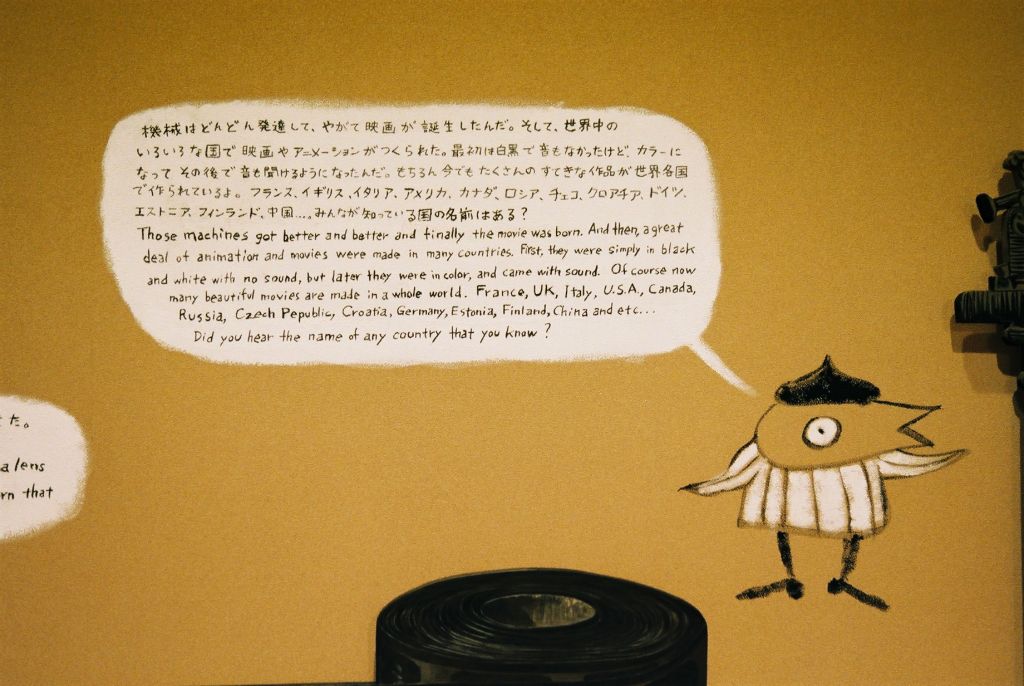 機械はどんどん発達して、やがて映画が誕生したんだ。そして、世界中の
いろいろな国で映画やアニメーションがつくられた。最初は白黒で音もなかったけど、カラーに
なってその後で音も聞けるようになったんだ。もちろん今でもたくさんのすてきな作品が世界各国
で作られているよ。フランス、イギリス、イタリア、アメリカ、カナダ、ロシア、チェコ、クロアチア、ドイツ、
エストニア、フィンランド、中国....みんなが知っている国の名前はある？
Those machines got better and better and finally the movie was born. And then, a great
deal of animation and movies were made in many countries. First, they were simply in black
and white with no sound, but later they were in color, and came with sound. Of course now
many beautiful movies are made in a whole world. France, UK, Italy, U.S.A., Canada,
Russia, Czech Pepublic, Croatia, Germany, Estonia, Finland, China and etc...
Did you hear the name of any country that you know?
た。
a lens
rn that